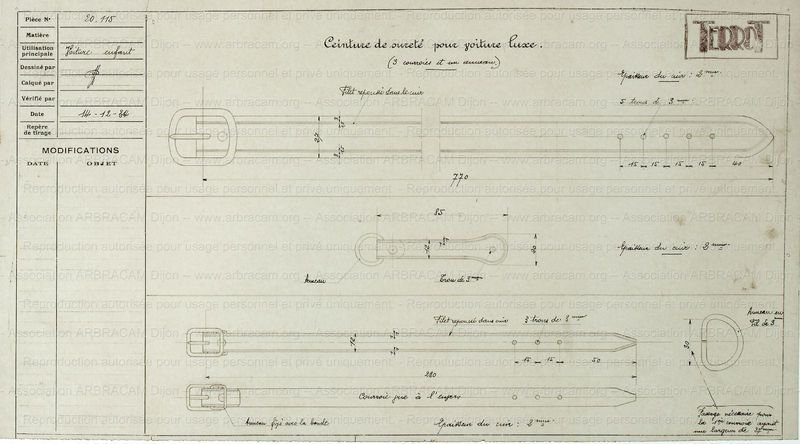 Pièce N° 20.115
Matière
Utilisation principale Voiture enfant
Dessiné par
Calqué par
Vérifié par
Date 14-12-36
Repère de tirage
MODIFICATIONS
DATE OBJET
Ceinture de sureté pour voiture luxe.
(3 courroies et un anneau)
TERROT
Epaisseur du cuir : 2 mm
5 trous de 3 mm
Filet repoussé dans le cuir
15 15 15 15 40
770
85
12
20
Epaisseur du cuir : 2 mm
Anneau
Trou de 3 mm
Filet repoussé dans cuir
3 trous de 3 mm
12
15 15 50
280
30
Anneau en fil de 3 mm
Courroie vue à l'envers
Anneau fixé avec la boucle
Epaisseur du cuir : 2 mm
Passage nécessaire pour
la 1ère courroie ayant
une largeur de
Association ARBRACAM Dijon -- www.arbracam.org -- Association ARBRACAM Dijon -- www.arbracam.org
Reproduction autorisée pour usage personnel et privé uniquement